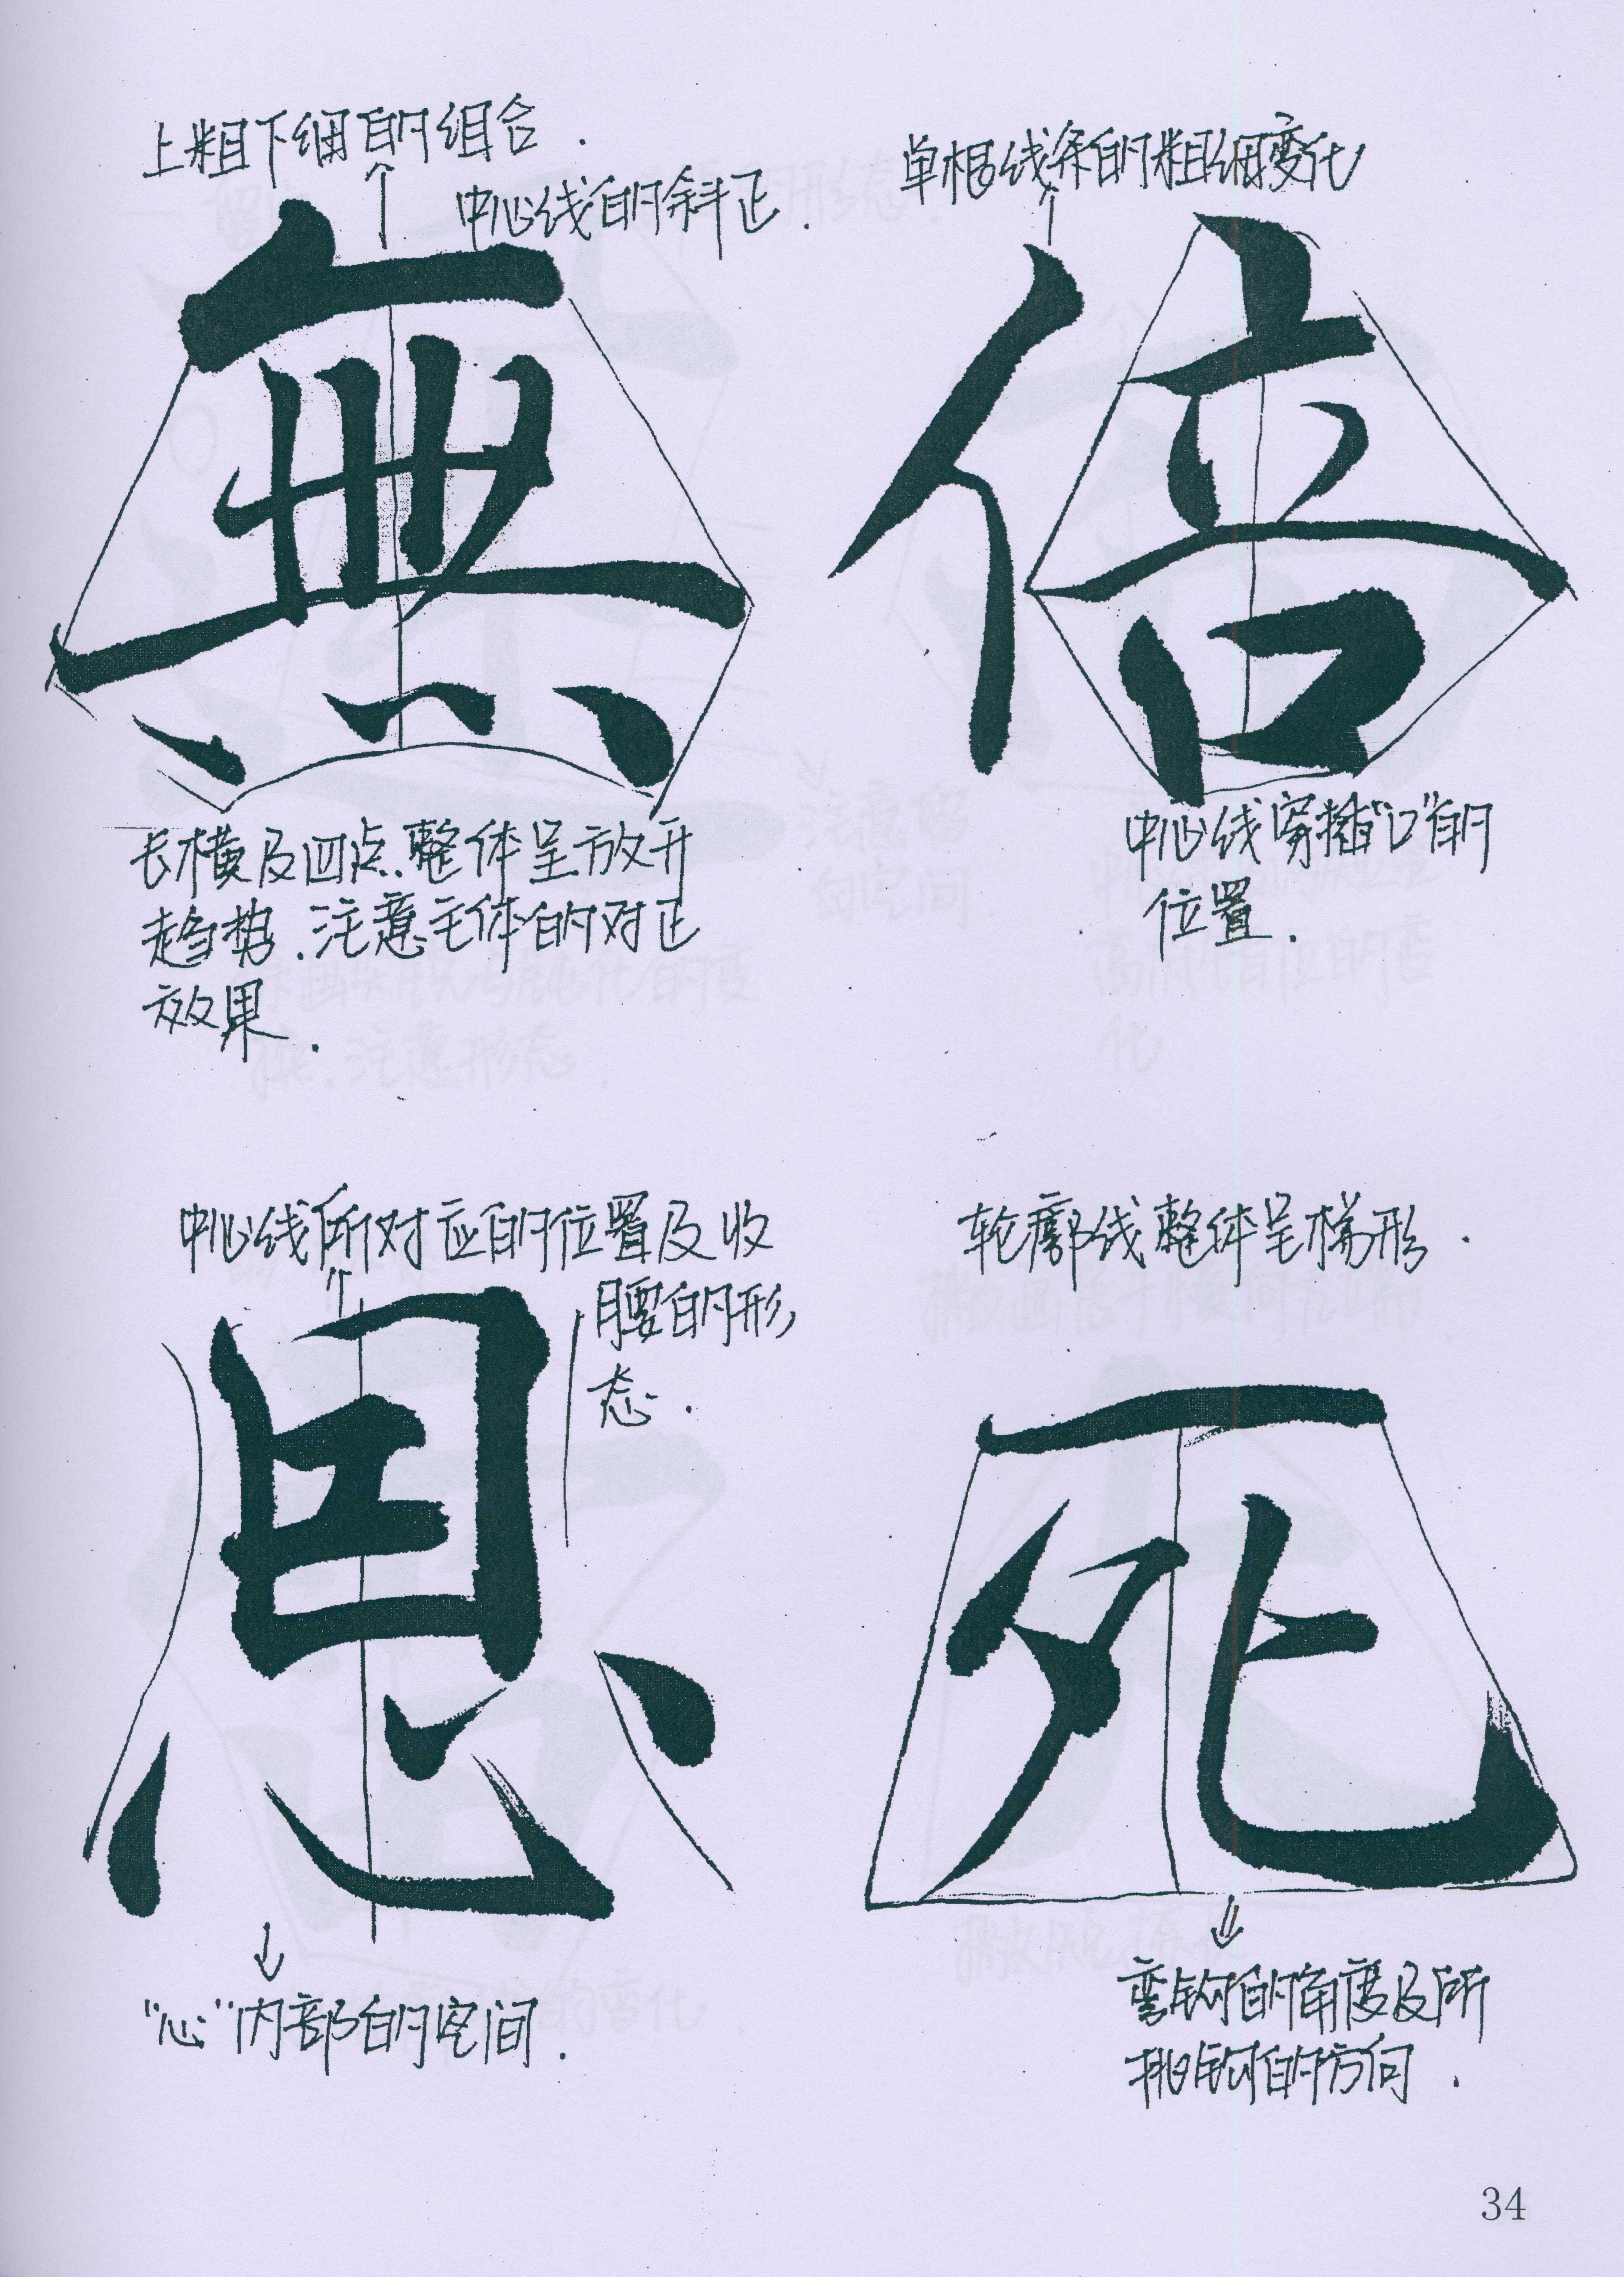 上粗下细的组合.
中心线的斜正.
無
长横及四点.整体呈放开
趋势.注意主体的对正
效果.
单根线条的粗细变化
倍
中心线穿插“口”的
位置.
中心线所对应的位置及收
腰的形
态.
思
“心”内部的空间.
轮廓线整体呈梯形.
死
弯钩的角度及所
挑钩的方向.
34